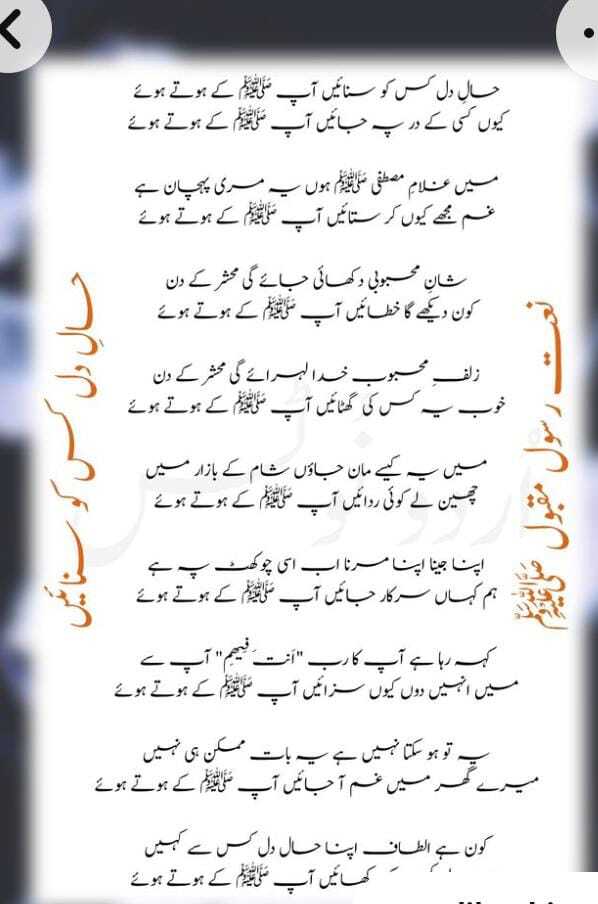 حالِ دل کس کو سنائیں آپ ﷺ کے ہوتے ہوئے
کیوں کسی کے در پہ جائیں آپ ﷺ کے ہوتے ہوئے
میں غلامِ مصطفٰی ﷺ ہوں یہ مری پہچان ہے
غم مجھے کیوں کر ستائیں آپ ﷺ کے ہوتے ہوئے
شانِ محبوبی دکھائی جائے گی محشر کے دن
کون دیکھے گا خطائیں آپ ﷺ کے ہوتے ہوئے
زلفِ محبوب خدا لہرائے گی محشر کے دن
خوب یہ کس کی گھٹائیں آپ ﷺ کے ہوتے ہوئے
میں یہ کیسے مان جاؤں شام کے بازار میں
چھین لے کوئی ردائیں آپ ﷺ کے ہوتے ہوئے
اپنا جینا اپنا مرنا اب اسی چوکھٹ پہ ہے
ہم کہاں سرکار جائیں آپ ﷺ کے ہوتے ہوئے
کہہ رہا ہے آپ کا رب "اَنتَ فِیھِم" آپ سے
میں انہیں دوں کیوں سزائیں آپ ﷺ کے ہوتے ہوئے
یہ تو ہو سکتا نہیں ہے یہ بات ممکن ہی نہیں
میرے گھر میں غم آ جائیں آپ ﷺ کے ہوتے ہوئے
کون ہے الطاف اپنا حال دل کس سے کہیں
کھائیں آپ ﷺ کے ہوتے ہوئے
نعت رسول مقبول ﷺ
حالِ دل کس کو سنائیں